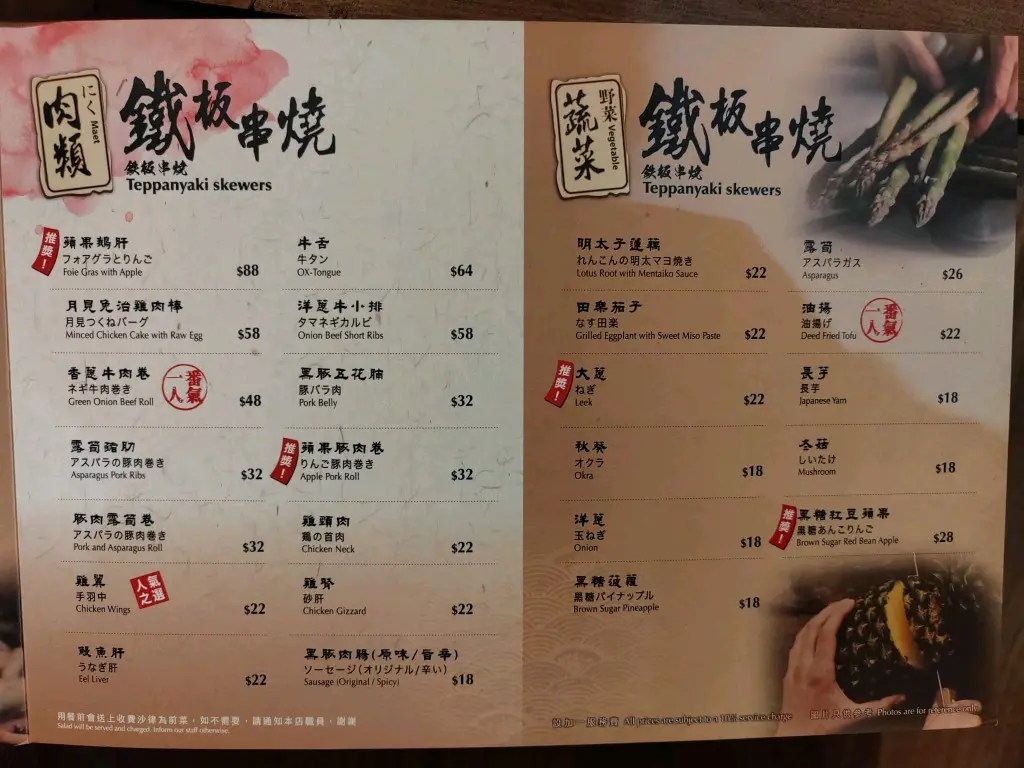 にく Maet
肉類
鐵板串燒
鉄板串焼
Teppanyaki skewers
推獎！
蘋果鵝肝
フォアグラとりんご
Foie Gras with Apple $88
月見免治雞肉棒
月見つくねバーグ
Minced Chicken Cake with Raw Egg $58
香蔥牛肉卷
ネギ牛肉巻き
Green Onion Beef Roll $48
一番人氣
露筍豬肋
アスパラの豚肉巻き
Asparagus Pork Ribs $32
豚肉露筍卷
アスパラの豚肉巻き
Pork and Asparagus Roll $32
雞翼
手羽中
Chicken Wings $22
人氣之選
鰻魚肝
うなぎ肝
Eel Liver $22
牛舌
牛タン
OX-Tongue $64
洋蔥牛小排
タマネギカルビ
Onion Beef Short Ribs $58
黑豚五花腩
豚バラ肉
Pork Belly $32
推獎！
蘋果豚肉卷
りんご豚肉巻き
Apple Pork Roll $32
雞頸肉
鶏の首肉
Chicken Neck $22
雞腎
砂肝
Chicken Gizzard $22
黑豚肉腸(原味/旨辛)
ソーセージ(オリジナル/辛い)
Sausage (Original / Spicy) $18
用餐前會送上收費沙律為前菜，如不需要，請通知本店職員，謝謝
Salad will be served and charged. Inform our staff otherwise.
野菜 Vegetable
蔬菜
鐵板串燒
鉄板串焼
Teppanyaki skewers
明太子蓮藕
れんこんの明太マヨ焼き
Lotus Root with Mentaiko Sauce $22
田樂茄子
なす田楽
Grilled Eggplant with Sweet Miso Paste $22
推獎！
大蔥
ねぎ
Leek $22
秋葵
オクラ
Okra $18
洋蔥
玉ねぎ
Onion $18
黑糖菠蘿
黒糖パイナップル
Brown Sugar Pineapple $18
露筍
アスパラガス
Asparagus $26
油揚
油揚げ
Deed Fried Tofu $22
一番人氣
長芋
長芋
Japanese Yam $18
冬菇
しいたけ
Mushroom $18
推獎！
黑糖紅豆蘋果
黒糖あんこりんご
Brown Sugar Red Bean Apple $28
設加一服務費 All prices are subject to a 10% service charge
圖片只供參考 Photos are for reference only